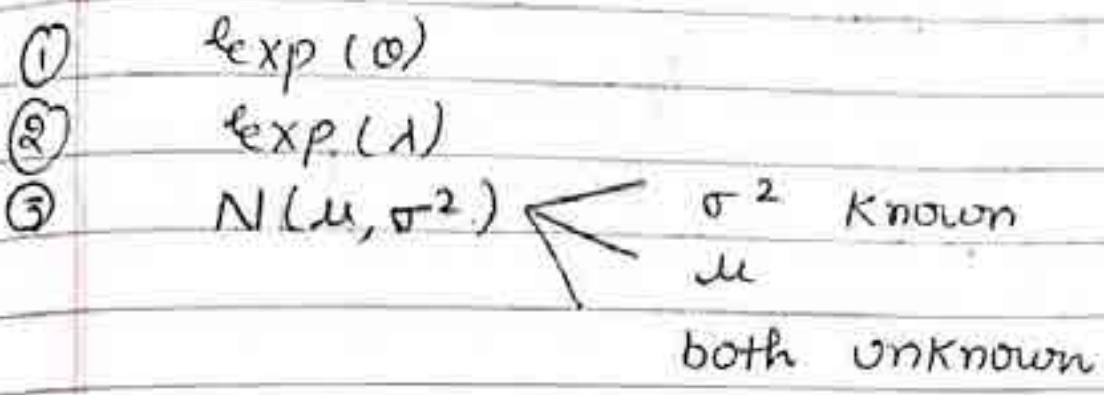 ① exp (θ)
② exp. (λ)
③ N(μ, σ²) σ² Known
μ
both unknown